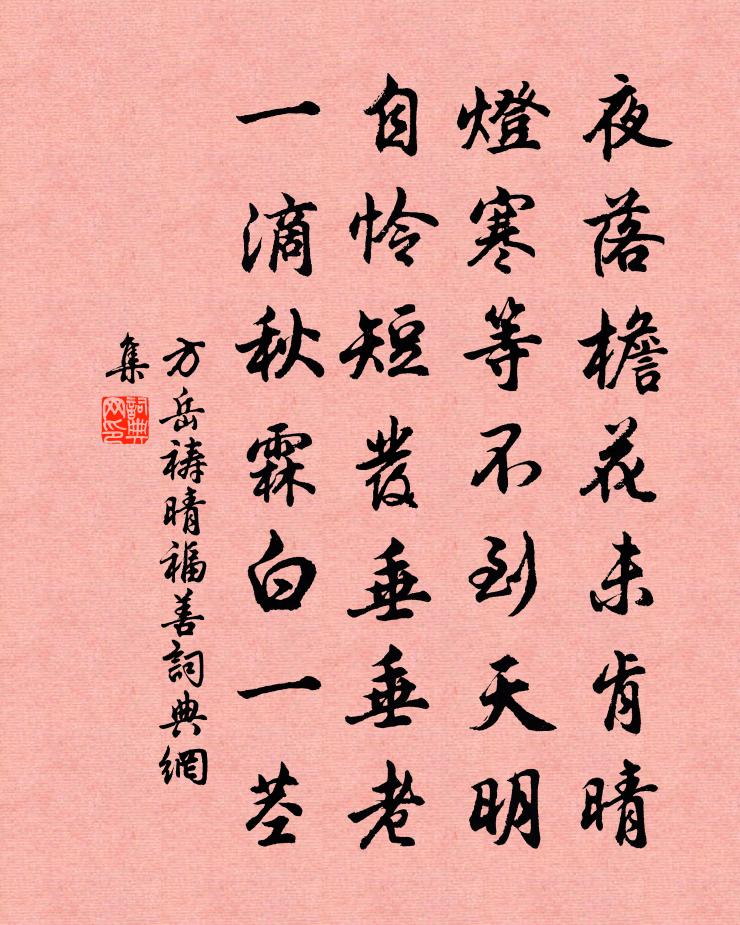 夜落檐花未肯晴
燈寒等不到天明
自怜短發垂垂老
一滴秋霖白一莖
方岳禱晴福善詞典網
集
詞典
网印